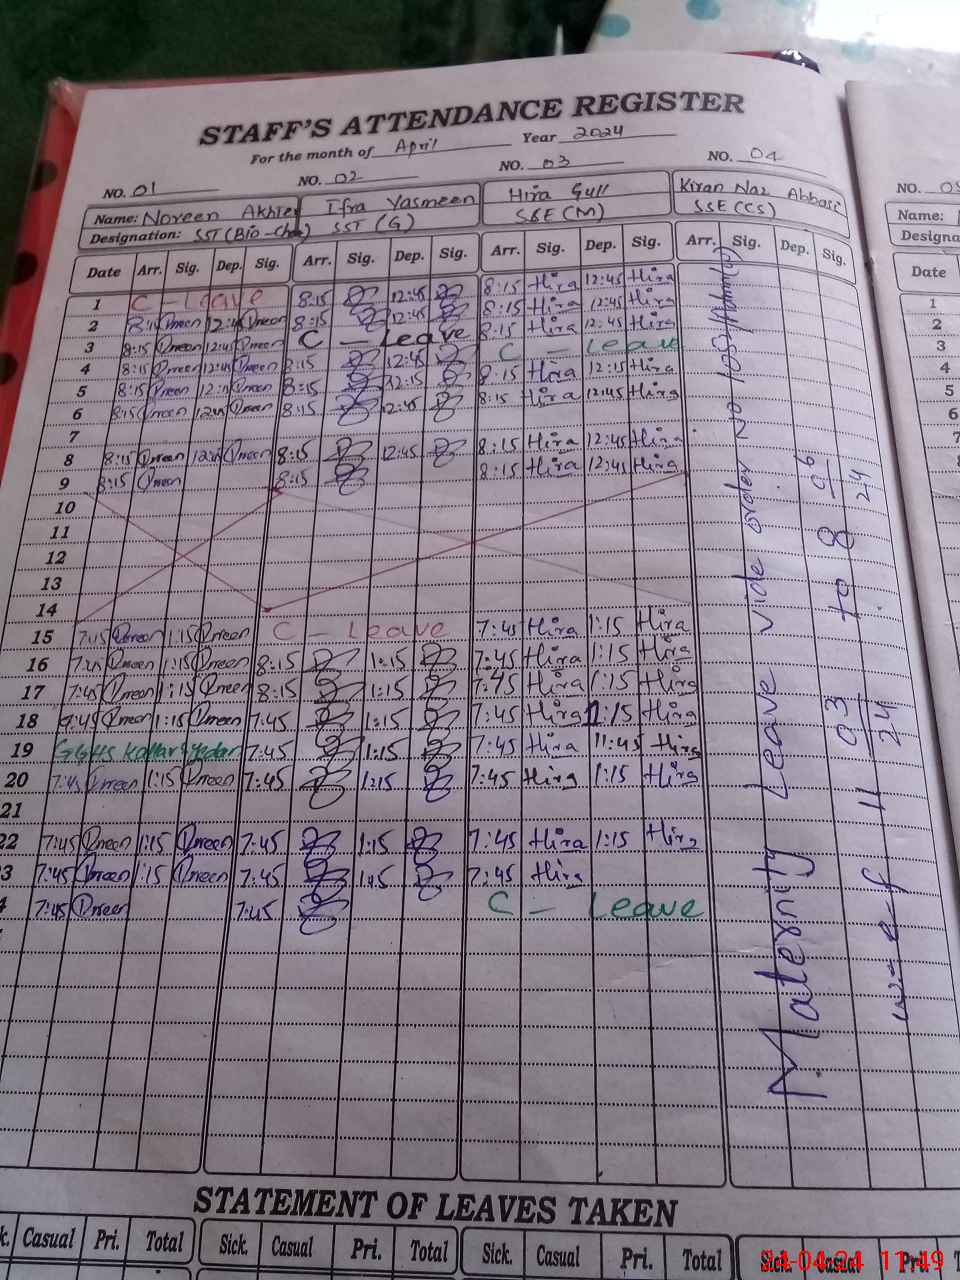 STAFF'S ATTENDANCE REGISTER
For the month of April Year 2024
NO. 01 NO. 02 NO. 03 NO. 04
Name: Noreen Akhter Ifra Yasmeen Hira Gull Kiran Naz Abbasi
Designation: SST (Bio-Che) SST (G) SSE (M) SSE (CS)
Date Arr. Sig. Dep. Sig. Arr. Sig. Dep. Sig. Arr. Sig. Dep. Sig. Arr. Sig. Dep. Sig.
1 C - Leave 8:15 12:45 8:15 Hira 12:45 Hira
2 8:15 12:45 8:15 12:45 8:15 Hira 12:45 Hira
3 8:15 12:45 C - Leave 8:15 Hira 12:45 Hira
4 8:15 12:45 8:15 12:45 C - Leave
5 8:15 8:15 12:15 8:15 Hira 12:15 Hira
6 8:15 8:15 12:45 8:15 Hira 12:45 Hira
7
8 8:15 8:15 12:45 8:15 Hira 12:45 Hira
9 8:15 8:15 8:15 Hira 12:45 Hira
10
11
12
13
14
15 7:45 1:15 C - Leave 7:45 Hira 1:15 Hira
16 7:45 1:15 8:15 1:15 7:45 Hira 1:15 Hira
17 7:45 1:15 8:15 1:15 7:45 Hira 1:15 Hira
18 7:45 1:15 7:45 1:15 7:45 Hira 1:15 Hira
19 GGHS 7:45 1:15 7:45 Hira 11:45 Hira
20 7:45 1:15 7:45 1:15 7:45 Hira 1:15 Hira
21
22 7:45 1:15 7:45 1:15 7:45 Hira 1:15 Hira
3 7:45 1:15 7:45 7:45 Hira
4 7:45 7:45 C - Leave
Maternity Leave vide order No
w-e-f 11 03 24 to 8 06 24
STATEMENT OF LEAVES TAKEN
k. Casual Pri. Total Sick. Casual Pri. Total Sick. Casual Pri. Total Sick. Casual Pri.
NO. 05
Name:
Designa
Date
1
2
3
4
5
6
7
8
24-04-24 11:49